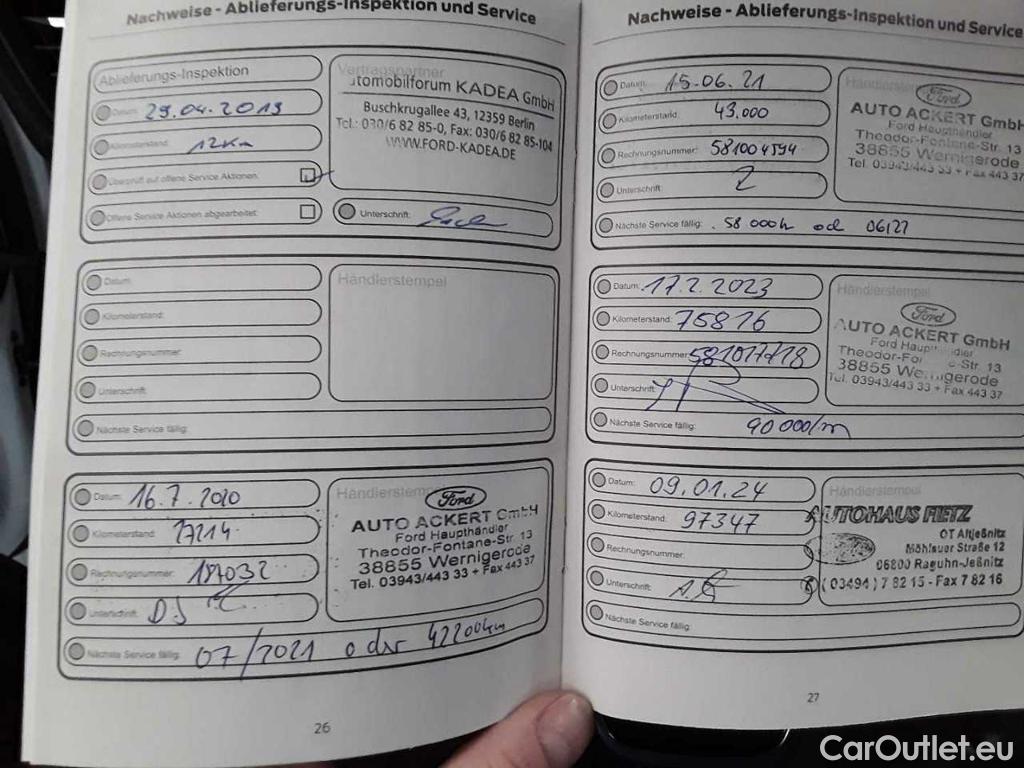 Nachweise - Ablieferungs-Inspektion und Service
Ablieferungs-Inspektion
Datum: 29.04.2019
Kilometerstand: 12Km
Überprüft auf offene Service Aktionen:
Offene Service Aktionen abgearbeitet:
Vertragspartner
utomobilforum KADEA GmbH
Buschkrugallee 43, 12359 Berlin
Tel.: 030/6 82 85-0, Fax: 030/6 82 85-104
WWW.FORD-KADEA.DE
Unterschrift:
Datum:
Kilometerstand:
Rechnungsnummer:
Unterschrift:
Nächste Service fällig:
Händlerstempel
Datum: 16.7.2020
Kilometerstand: 27214
Rechnungsnummer: 187032
Unterschrift:
Nächste Service fällig: 07/2021 oder 42200km
Händlerstempel
Ford
AUTO ACKERT GmbH
Ford Haupthändler
Theodor-Fontane-Str. 13
38855 Wernigerode
Tel. 03943/443 33 + Fax 443 37
26
Nachweise - Ablieferungs-Inspektion und Service
Datum: 15.06.21
Kilometerstand: 43.000
Rechnungsnummer: 581004594
Unterschrift:
Nächste Service fällig: 58 000k od 06/22
Händlerstempel
Ford
AUTO ACKERT GmbH
Ford Haupthändler
Theodor-Fontane-Str. 13
38855 Wernigerode
Tel. 03943/443 33 + Fax 443 37
Datum: 17.2.2023
Kilometerstand: 75816
Rechnungsnummer: 581017718
Unterschrift:
Nächste Service fällig: 90 000/m
Händlerstempel
Ford
AUTO ACKERT GmbH
Ford Haupthändler
Theodor-Fo e-Str. 13
38855 Wernigerode
Tel. 03943/443 33 + Fax 443 37
Datum: 09.01.24
Kilometerstand: 97347
Rechnungsnummer:
Unterschrift:
Nächste Service fällig:
Händlerstempel
AUTOHAUS FIETZ
OT Altjeßnitz
Möhlauer Straße 12
06800 Raguhn-Jeßnitz
(03494) 7 82 15 - Fax 7 82 16
27
CarOutlet.eu